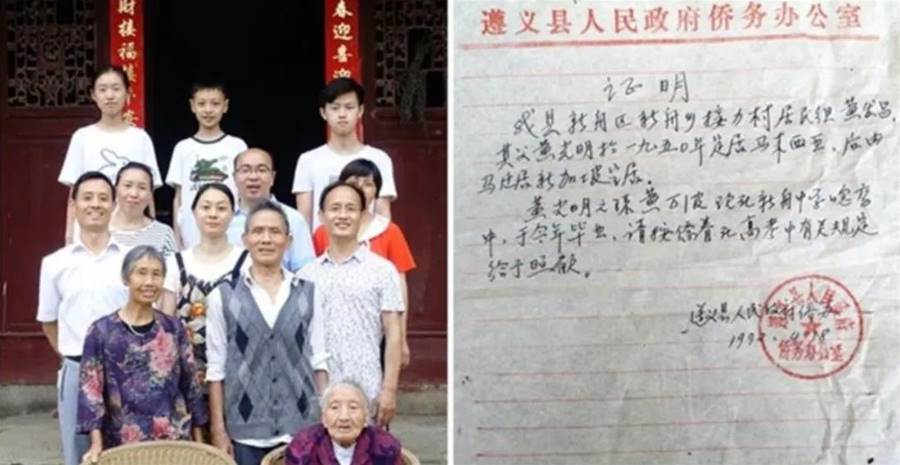 財接福
春迎喜迎
遵义县人民政府侨务办公室
证明
我县新舟区新舟乡接力村居民组黄昌,
其父黄光明於一九五0年定居马来西亚,后由
马迁居新加坡定居。
黄光明之孫黄万波现在新舟中学唸高
中,于今年毕业,请按侨眷在高考中有关规定
给于照顾。
遵义县人民政府侨务
侨务办公室